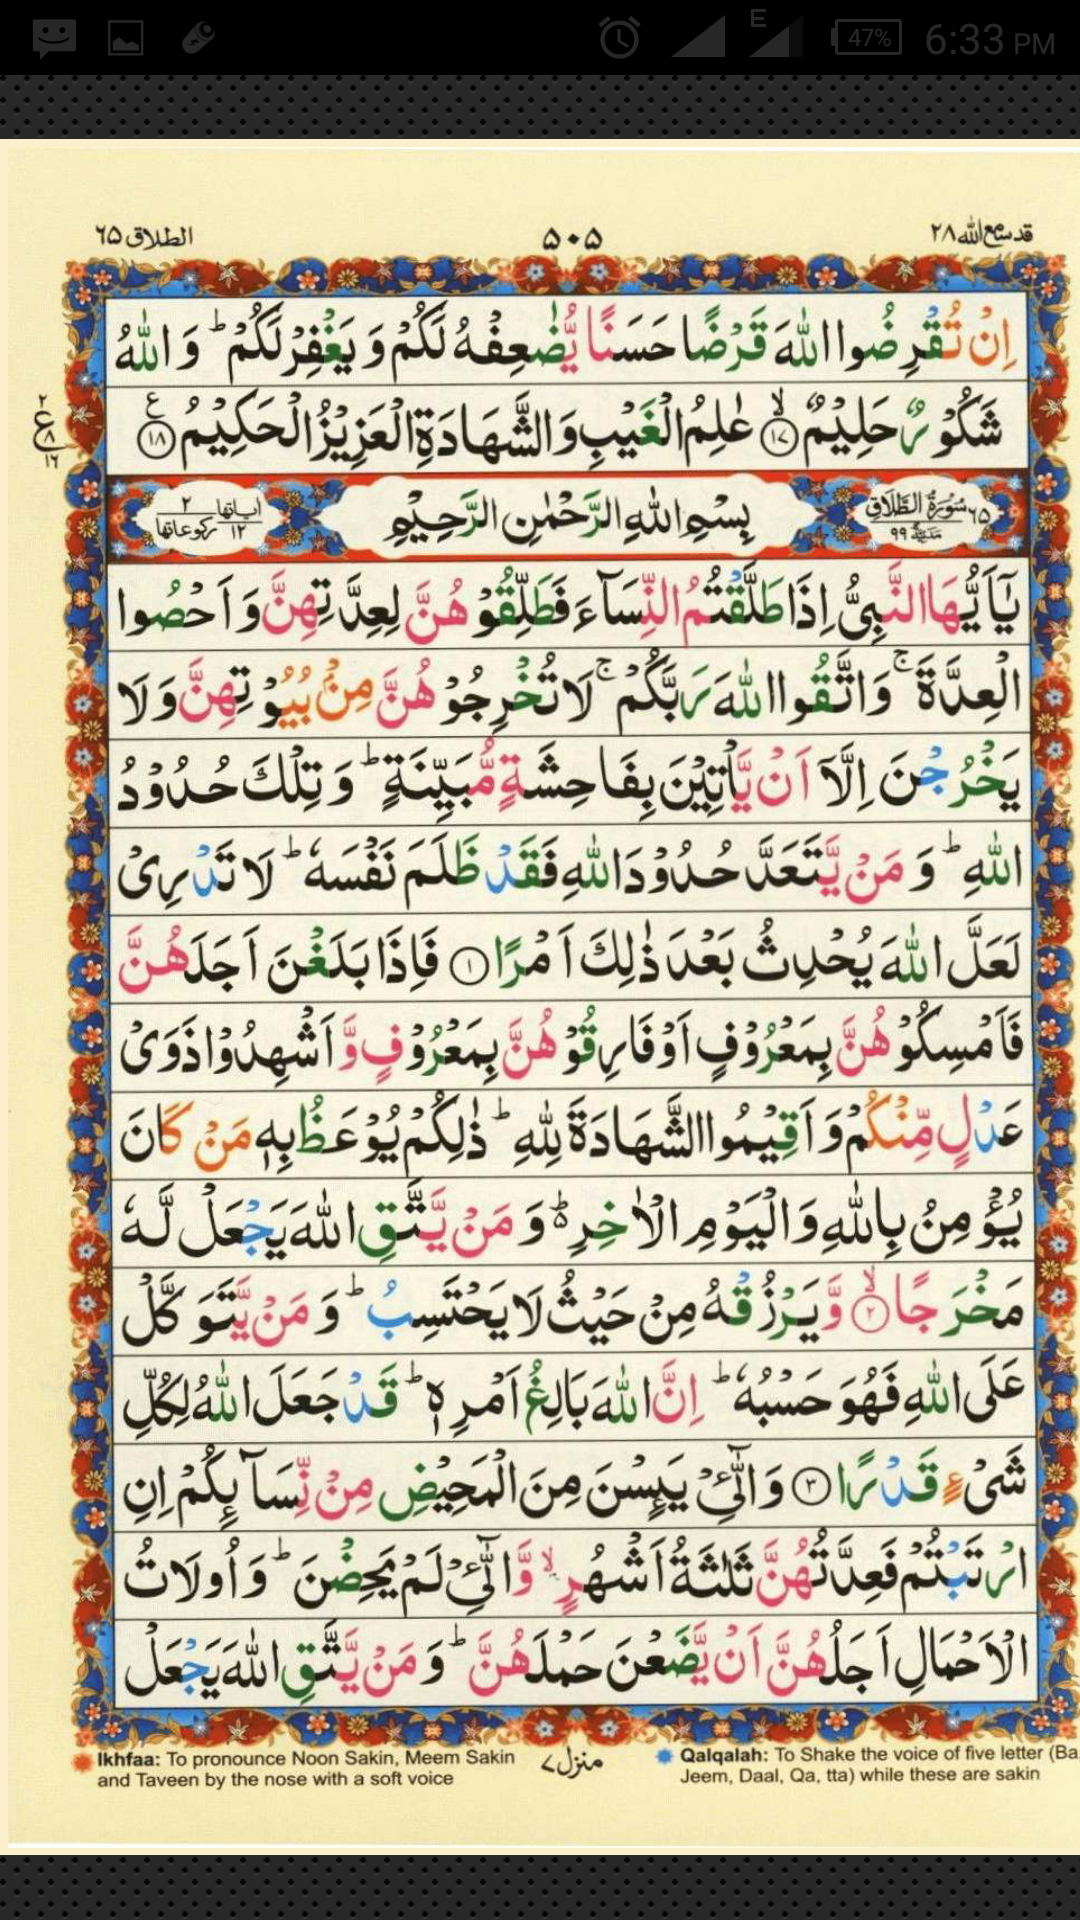 47% 6:33 PM
E
قد سمع الله ٢٨
۵۰۵
الطلاق ٦٥
اِنْ تُقْرِضُوا اللّٰهَ قَرْضًا حَسَنًا يُّضٰعِفْهُ لَكُمْ وَيَغْفِرْ لَكُمْ ؕ وَاللّٰهُ
شَكُوْرٌ حَلِيْمٌ ۙ‏﴿۱۷﴾ عٰلِمُ الْغَيْبِ وَالشَّهَادَةِ الْعَزِيْزُ الْحَكِيْمُ ﴿۱۸﴾
ع
٢
٨
١٦
٦٥ سُوْرَةُ الطَّلَاقِ مَدَنِيَّةٌ ٩٩
بِسْمِ اللّٰهِ الرَّحْمٰنِ الرَّحِيْمِ
اٰیاتها ١٢ رکوعاتها ٢
يٰۤاَيُّهَا النَّبِىُّ اِذَا طَلَّقْتُمُ النِّسَآءَ فَطَلِّقُوْهُنَّ لِعِدَّتِهِنَّ وَاَحْصُوا
الْعِدَّةَ ۚ وَاتَّقُوا اللّٰهَ رَبَّكُمْ ۚ لَا تُخْرِجُوْهُنَّ مِنْۢ بُيُوْتِهِنَّ وَلَا
يَخْرُجْنَ اِلَّاۤ اَنْ يَّاْتِيْنَ بِفَاحِشَةٍ مُّبَيِّنَةٍ ؕ وَتِلْكَ حُدُوْدُ
اللّٰهِ ؕ وَمَنْ يَّتَعَدَّ حُدُوْدَ اللّٰهِ فَقَدْ ظَلَمَ نَفْسَهٗ ؕ لَا تَدْرِىْ
لَعَلَّ اللّٰهَ يُحْدِثُ بَعْدَ ذٰلِكَ اَمْرًا ﴿۱﴾ فَاِذَا بَلَغْنَ اَجَلَهُنَّ
فَاَمْسِكُوْهُنَّ بِمَعْرُوْفٍ اَوْ فَارِقُوْهُنَّ بِمَعْرُوْفٍ وَّاَشْهِدُوْا ذَوَىْ
عَدْلٍ مِّنْكُمْ وَاَقِيْمُوا الشَّهَادَةَ لِلّٰهِ ؕ ذٰلِكُمْ يُوْعَظُ بِهٖ مَنْ كَانَ
يُؤْمِنُ بِاللّٰهِ وَالْيَوْمِ الْاٰخِرِ ۬ؕ وَمَنْ يَّتَّقِ اللّٰهَ يَجْعَلْ لَّهٗ
مَخْرَجًا ۙ‏﴿۲﴾ وَّيَرْزُقْهُ مِنْ حَيْثُ لَا يَحْتَسِبُ ؕ وَمَنْ يَّتَوَكَّلْ
عَلَى اللّٰهِ فَهُوَ حَسْبُهٗ ؕ اِنَّ اللّٰهَ بَالِغُ اَمْرِهٖ ؕ قَدْ جَعَلَ اللّٰهُ لِكُلِّ
شَىْءٍ قَدْرًا ﴿۳﴾ وَالّٰٓـئِْ يَٮِٕسْنَ مِنَ الْمَحِيْضِ مِنْ نِّسَآٮِٕكُمْ اِنِ
ارْتَبْتُمْ فَعِدَّتُهُنَّ ثَلٰثَةُ اَشْهُرٍ ۙ وَّالّٰٓـئِْ لَمْ يَحِضْنَ ؕ وَاُولَاتُ
الْاَحْمَالِ اَجَلُهُنَّ اَنْ يَّضَعْنَ حَمْلَهُنَّ ؕ وَمَنْ يَّتَّقِ اللّٰهَ يَجْعَلْ
Ikhfaa: To pronounce Noon Sakin, Meem Sakin
and Taveen by the nose with a soft voice
منزل ۷
Qalqalah: To Shake the voice of five letter (Ba
Jeem, Daal, Qa, tta) while these are sakin